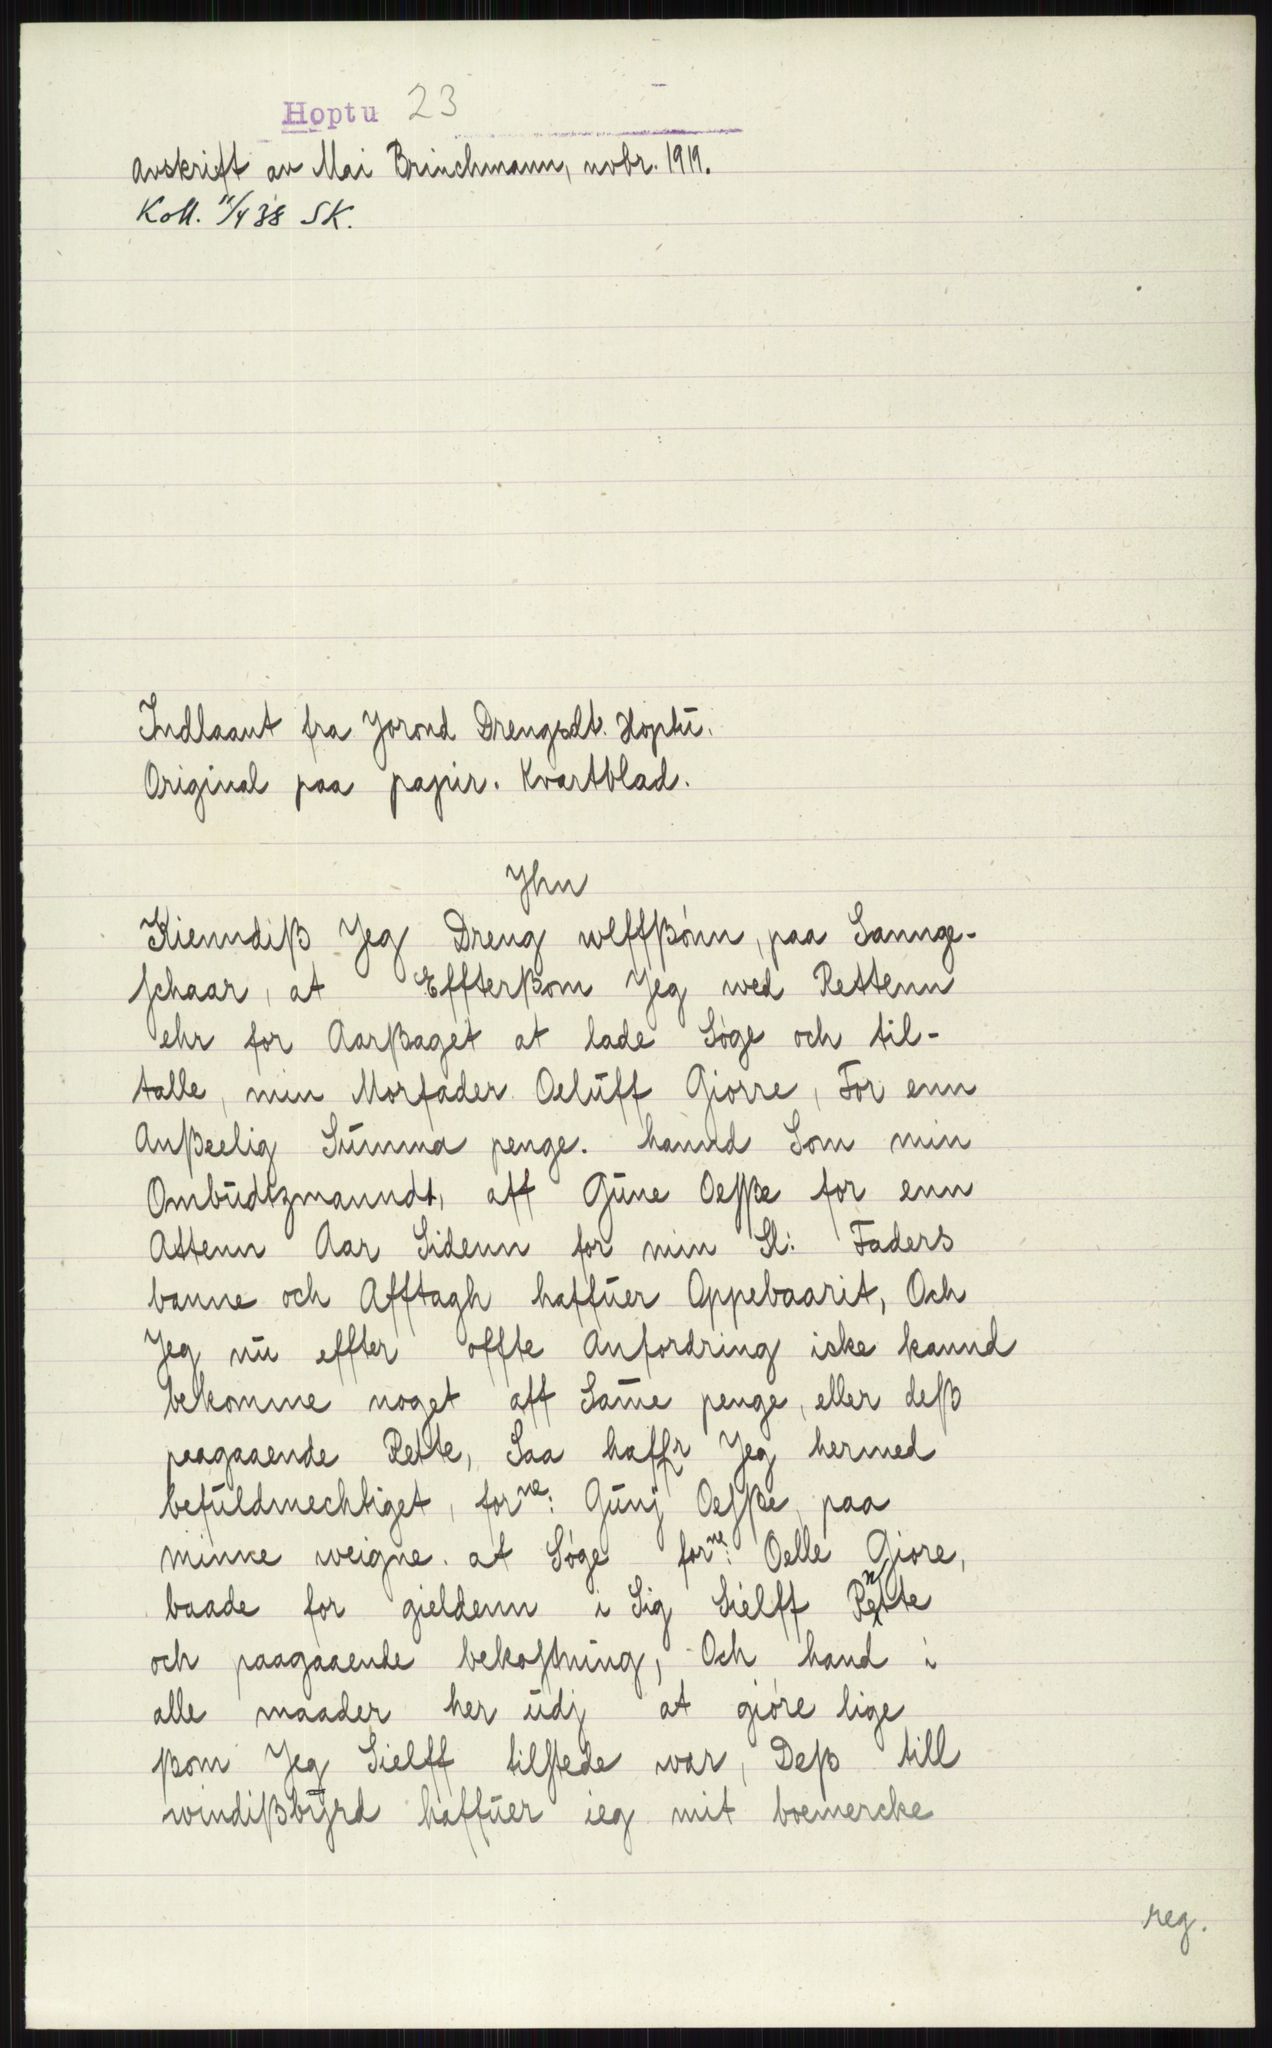 Hoptu 23
Avskrift av Mai Brinchmann, novbr. 1919.
Koll. 11/4 38 SK.
Indlaant fra Jorond Drengsdt. Hoptŭ.
Original paa papir. Kvartblad.
Jhn
Kienndiß Jeg Dreng wlffßónn, paa Sannge-
schaar, at Effterßom Jeg wed Rettenn
ehr for Aarßaget at lade Søge och til-
talle, min Morfader Oelŭff Giorre, For enn
Anßeelig Sŭmma penge. hannd Som min
Ombŭdtzmanndt, aff Gŭne Oesße for enn
Attenn Aar Sidenn for min Sl: Faders
banne och Afftagh haffŭer Oppebaarit, Och
Jeg nŭ effter offte Anfordring iske kannd
bekomme noget aff Same penge, eller deß
paagaaende Rette, Saa haffr Jeg hermed
befŭldmechtiget, forne: Gŭnj Oesße, paa
minne weigne. at Søge forne: Oelle Giore,
baade for gieldenn i Sig Sielff Rentte
och paagaaende bekostning, Och hand i
alle maader her ŭdj at gióre lige
ßom Jeg Sielff tilstede war, Deß till
windißbÿrd haffŭer ieg mit boemercke
reg.